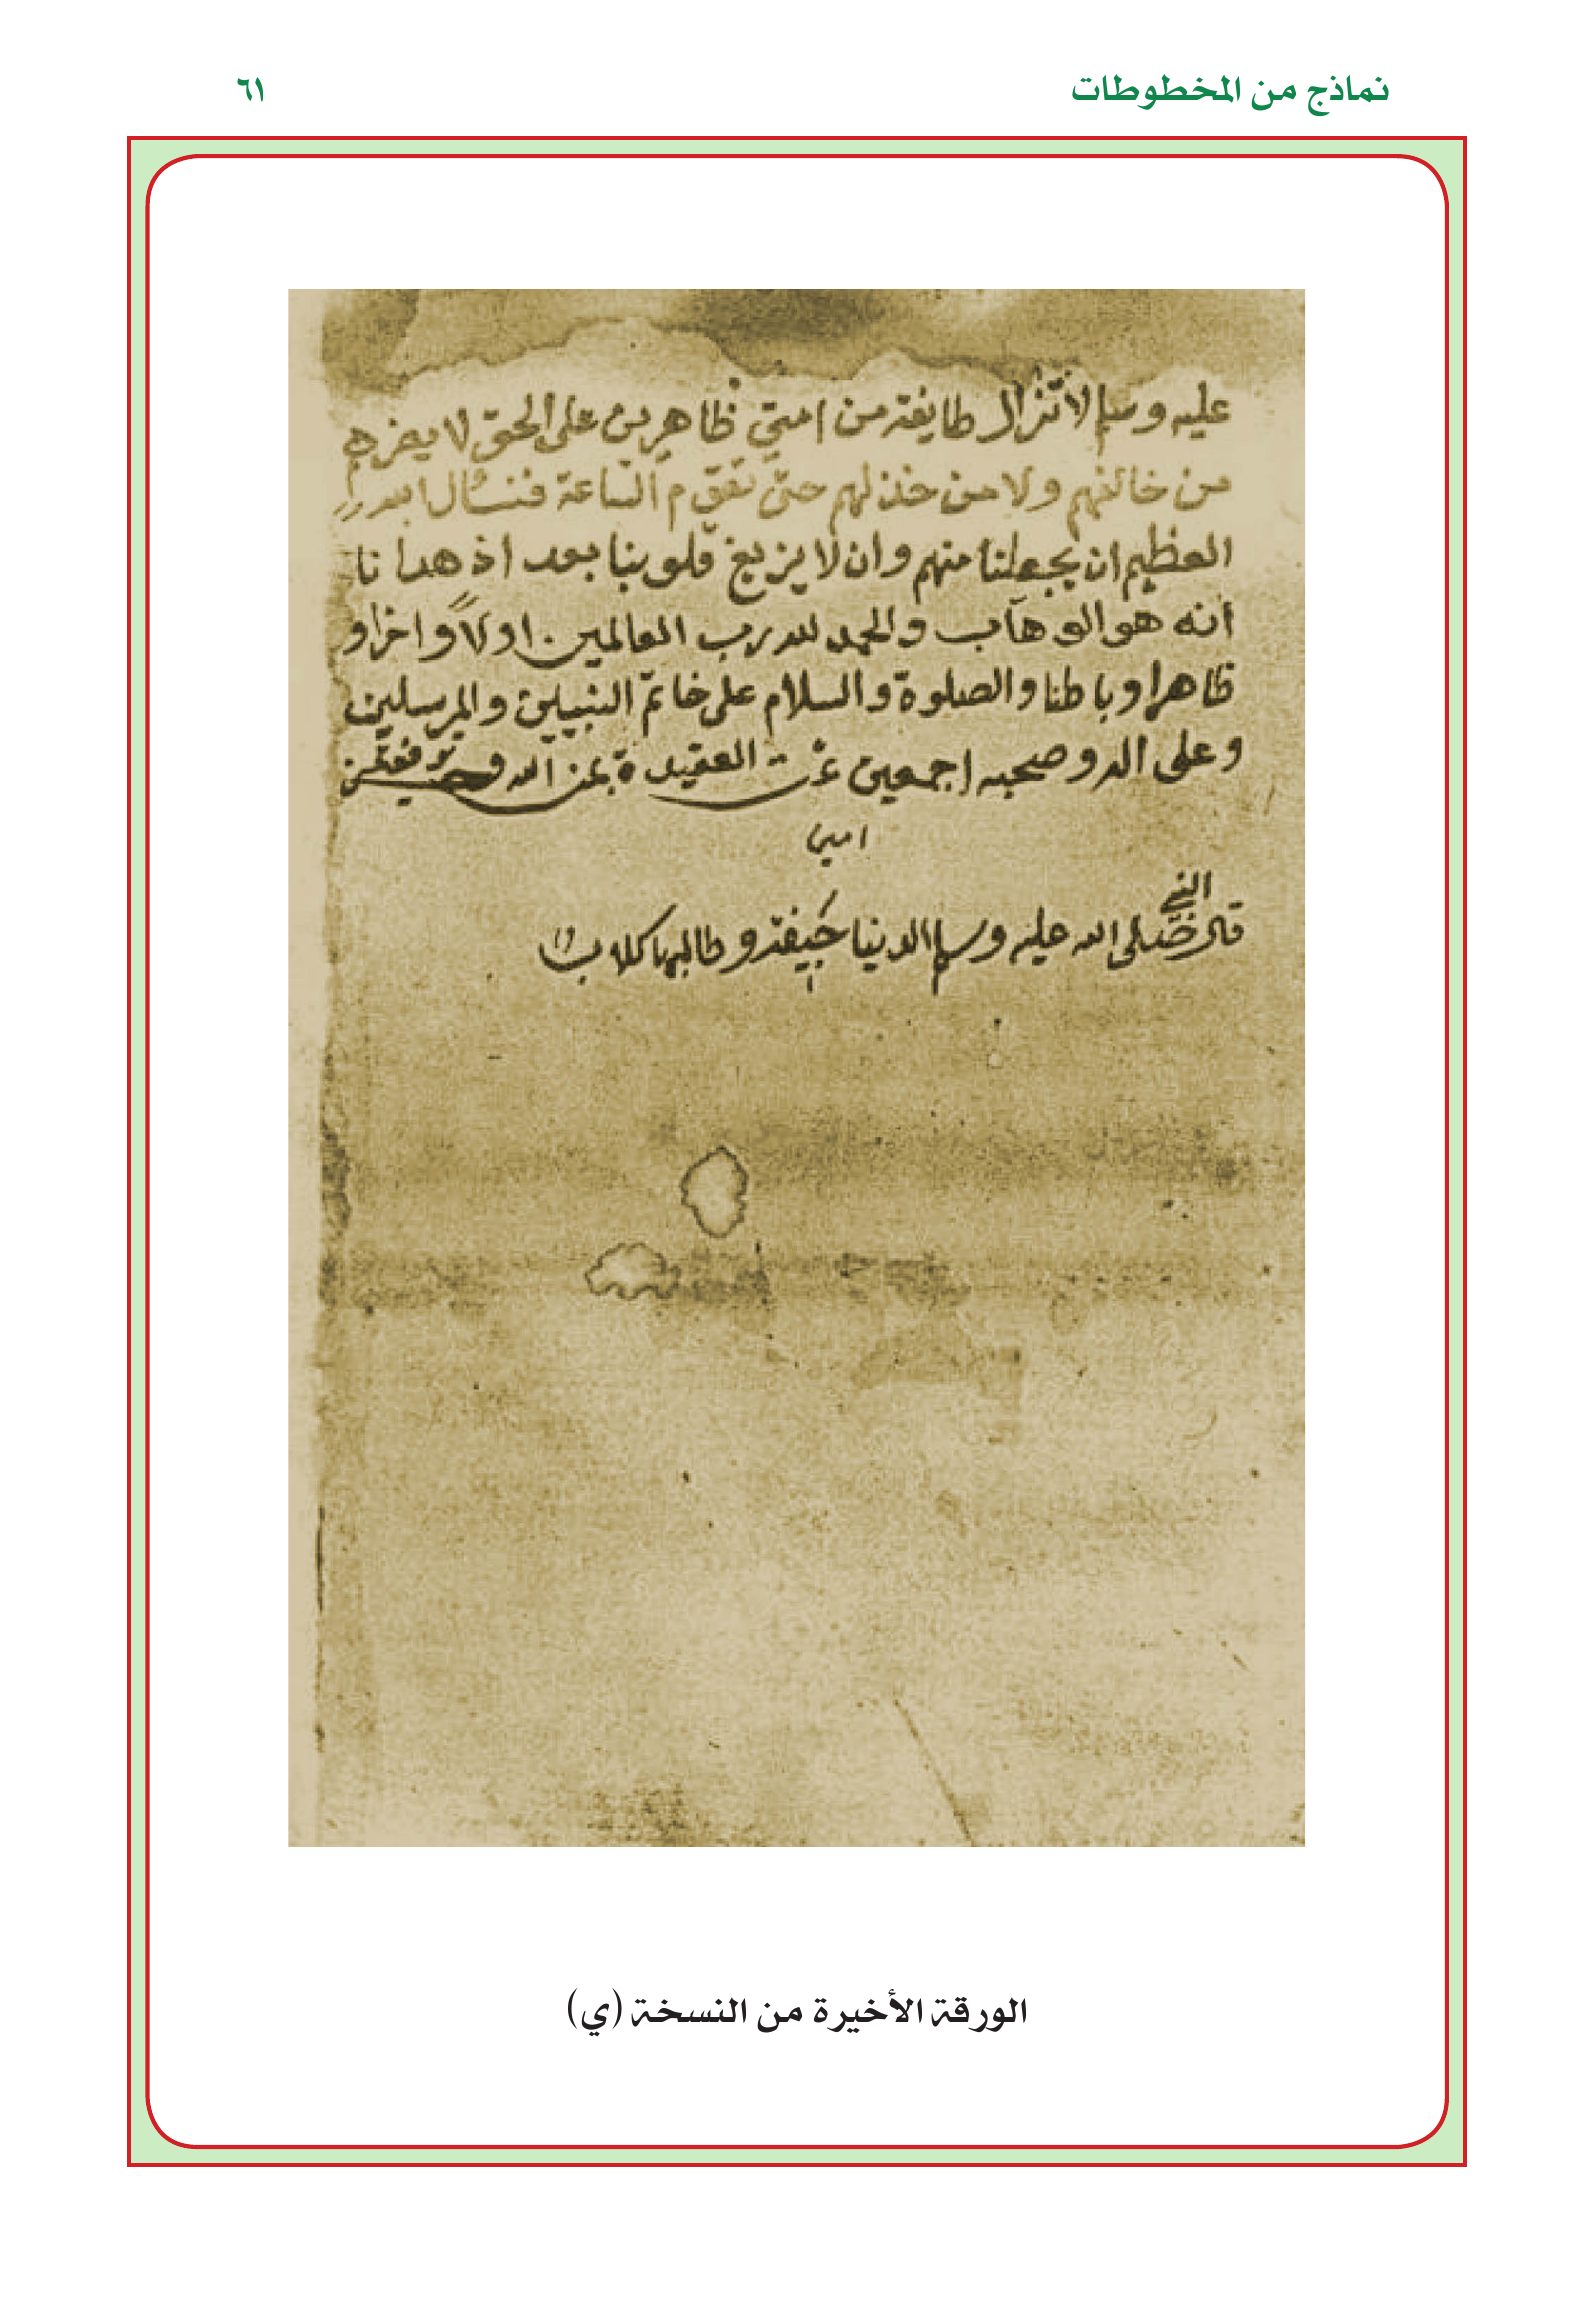 نماذج من المخطوطات ٦١
عليه وسلم لا تزال طايفة من امتي ظاهرين على الحق لا يضرهم
من خالفهم ولا من خذلهم حتى تقوم الساعة فنسال الله
العظيم ان يجعلنا منهم وان لا يزيغ قلوبنا بعد اذ هدانا
انه هو الوهاب والحمد لله رب العالمين اولا واخرا و
ظاهرا وباطنا والصلوة والسلام على خاتم النبيين والمرسلين
وعلى اله وصحبه اجمعين تمت العقيدة بمن الله و
امين
قال النبي صلى الله عليه وسلم الدنيا جيفة وطالبها كلاب
الورقة الأخيرة من النسخة (ي)